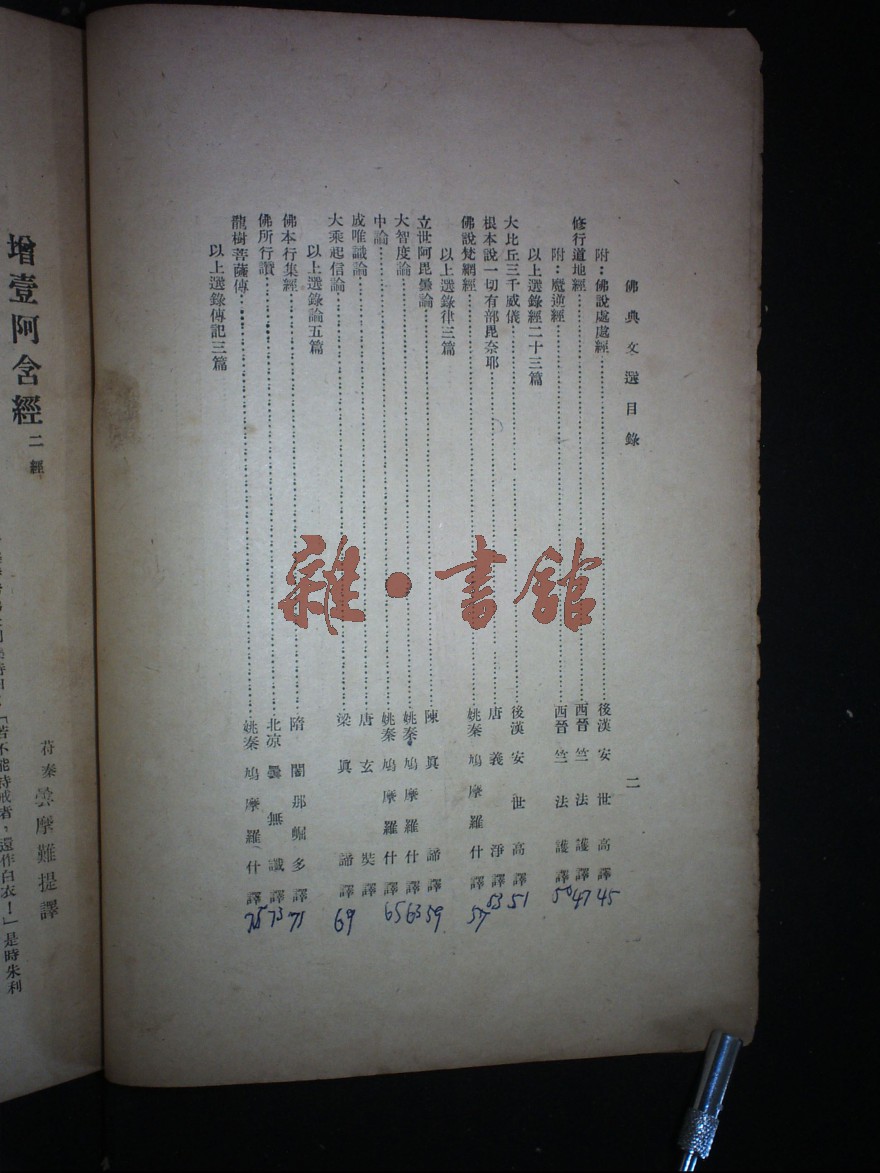 佛典文選目錄 二
附：佛說處處經 後漢安世高譯 45
修行道地經 西晉竺法護譯 47
附：魔逆經 西晉竺法護譯 50
以上選錄經二十三篇
大比丘三千威儀 後漢安世高譯 51
根本說一切有部毘奈耶 唐義淨譯 53
佛說梵網經 姚秦鳩摩羅什譯 57
以上選錄律三篇
立世阿毘曇論 陳真諦譯 59
大智度論 姚秦鳩摩羅什譯 63
中論 姚秦鳩摩羅什譯 65
成唯識論 唐玄奘譯
大乘起信論 梁真諦譯 69
以上選錄論五篇
佛本行集經 隋闍那崛多譯 71
佛所行讚 北凉曇無讖譯 73
龍樹菩薩傳 姚秦鳩摩羅什譯 75
以上選錄傳記三篇
增壹阿含經 二經
苻秦曇摩難提譯
「若不能持戒者，還作白衣！」是時朱利
雜·書館